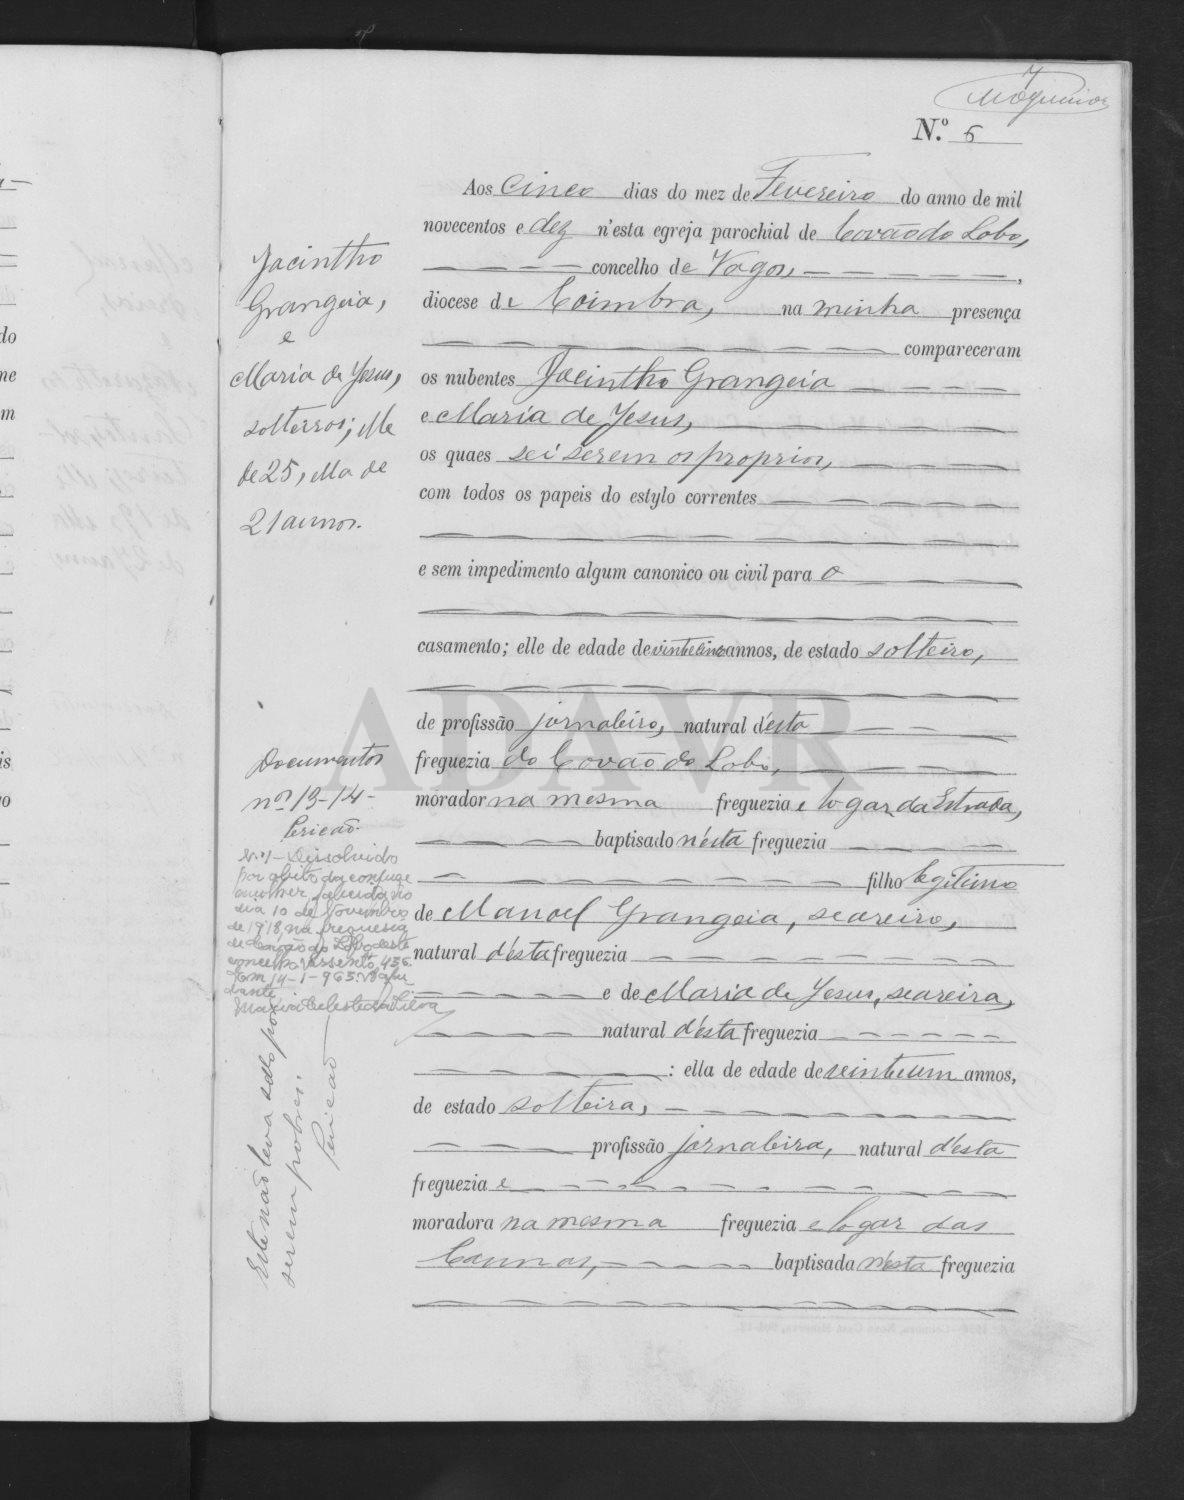 7
N.º 5
Aos Cinco dias do mez de Fevereiro do anno de mil
novecentos e dez n'esta egreja parochial de Covão do Lobo,
concelho de Vagos,
diocese de Coimbra, na minha presença
compareceram
os nubentes Jacintho Grangeia
e Maria de Jesus,
os quaes sei serem os proprios,
com todos os papeis do estylo correntes
e sem impedimento algum canonico ou civil para o
casamento; elle de edade de vinte e cinco annos, de estado solteiro,
de profissão jornaleiro, natural d'esta
freguezia do Covão do Lobo,
morador na mesma freguezia e logar da Estrada,
baptisado n'esta freguezia
filho legitimo
de Manoel Grangeia, seareiro,
natural d'esta freguezia
e de Maria de Jesus, seareira,
natural d'esta freguezia
: ella de edade de veinte e um annos,
de estado solteira,
profissão jornaleira, natural d'esta
freguezia e
moradora na mesma freguezia e logar das
baptisada n'esta freguezia
Jacintho
Grangeia,
e
Maria de Jesus,
solteiros; elle
de 25, ella de
21 annos.
Documentos
nos 13-14-
N.º 1 - Dissolvido
por obito da conjuge
mulher, falecida no
dia 10 de Novembro
de 1918, na freguesia
de Covão do Lobo deste
concelho. Assento 436.
Em 14-1-965. O Aju
dante,
Maria Celeste da Silva
Este não leva sello por
serem pobres.
ADAVR